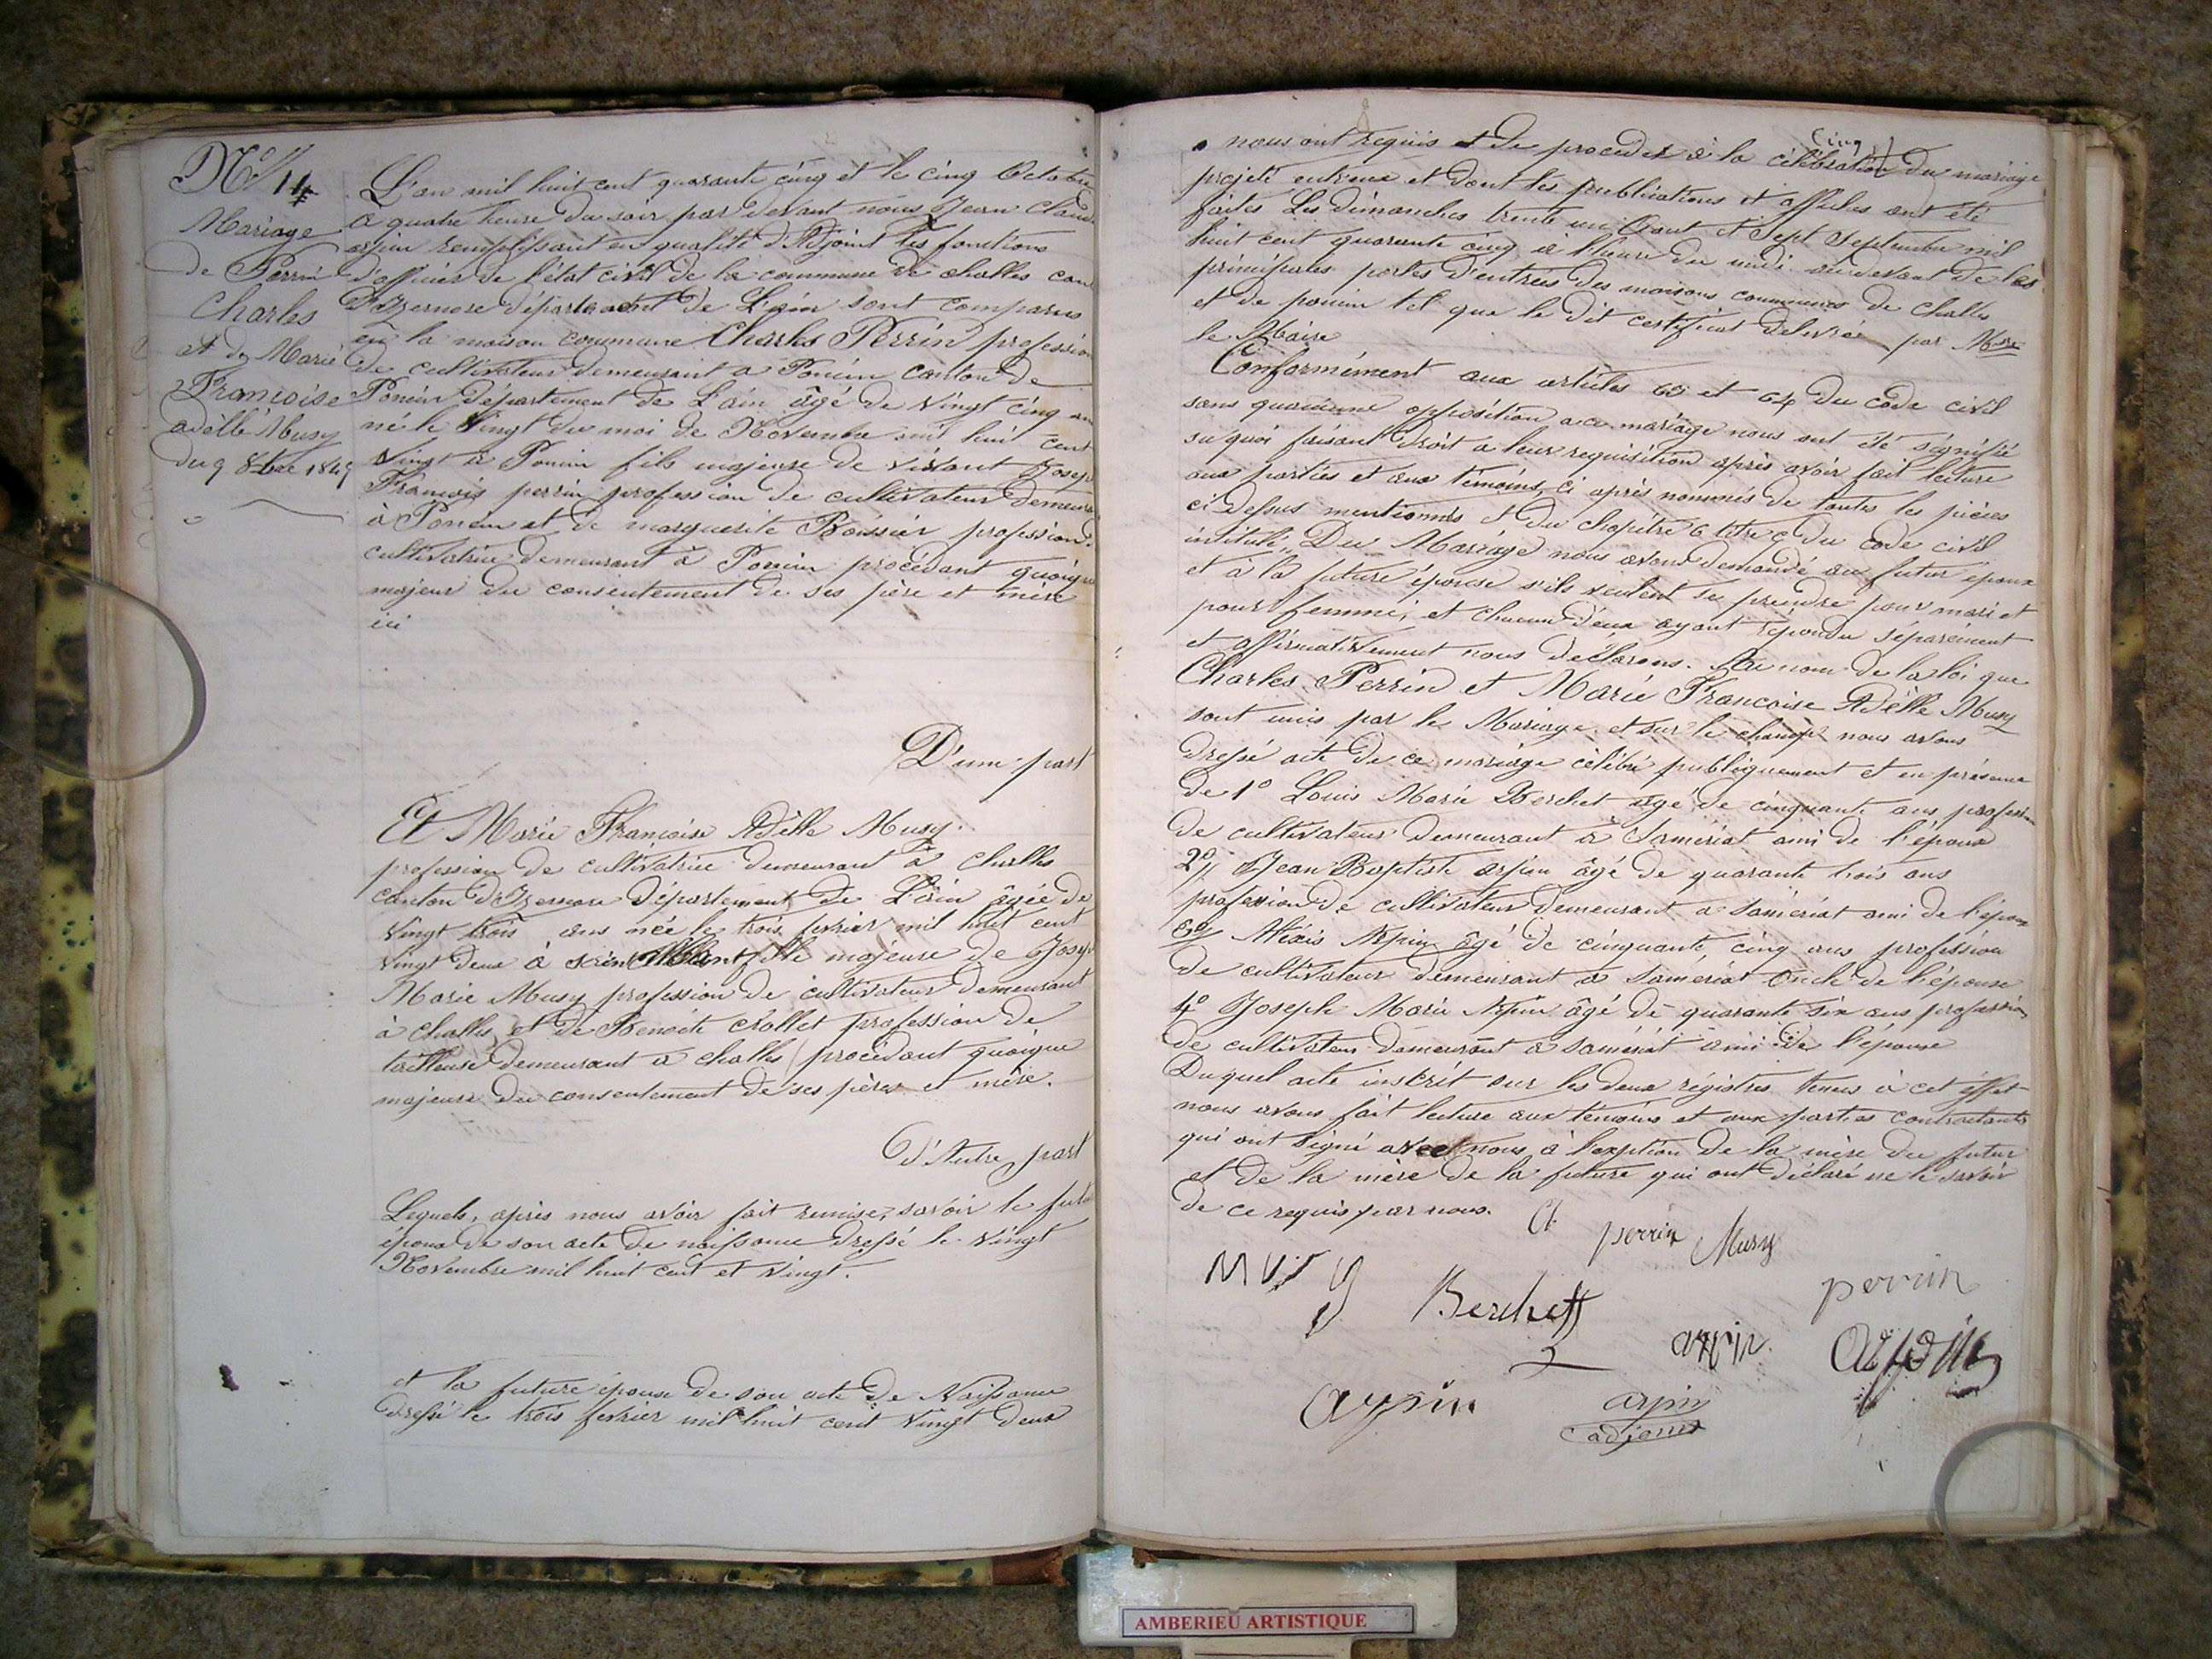 N° 14
Mariage
de Perrin
Charles
et de Marie
Françoise
adélle Musy
du 9 8bre 1845
L'an mil huit cent quarante cinq et le cinq Octobre
a quatre heure du soir par devant nous Jean Claude
arpin remplissant en qualité d'Adjoint les fonctions
d'officier de l'état civil de la commune de challes can
D'Izernore département de L'ain sont comparus
en la maison commune Charles Perrin profession
de cultivateur demeurant a Poncin Canton de
Poncin Département de L'ain âgé de vingt cinq an
né le Vingt du moi de Novembre mil huit cent
Vingt à Poncin fils majeure de vivant Josep
François perrin profession de cultivateur demeura
à Poncin et de marguerite Boissier profession
cultivatrice demeurant à Poncin procédant quoique
majeur du consentement de ses père et mère
ici
D'une part
Et Marie Françoise Adélle Musy.
profession de cultivatrice demeurant à Challes
canton D'Izernore Département de L'ain âgée de
vingt trois ans née le trois fevrier mil huit cent
vingt deux à fille majeure de Josep
Marie Musy profession de cultivateur demeurant
à Challes et de Benoite Chollet profession de
tailleuse demeurant a challes procédant quoique
majeure du consentement de ses pères et mère.
D'Autre part
Lequels, après nous avoir fait remise, savoir le futur
époux de son acte de naissance dressé le Vingt
Novembre mil huit cent et vingt.
et la future épouse de son acte de Naissance
dressé le trois fevrier mil huit cent vingt deux
nous ont requis et de proceder à la célébration du mariage
projeté entreux et dont les publications et affiches ont été
faites Les dimanches trente un Aout et Sept Septembre mil
huit cent quarante cinq à l'heure du midi au devant de les
principales portes d'entrées des maisons communes de Challes
et de poncin tel que le dit certificat delivrée par Msre
le Maire
Conformément aux articles 63 et 64 du code civil
sans qu'aucune opposition a ce mariage nous ont été signifié
su quoi faisant droit a leur requisition après avoir fait lecture
aux parties et aux témoins, ci après nommés de toutes les pièces
ci dessus mentionnés et du chapitre 6 titre du code civil
intitulé, Du Mariage nous avons demandé au futur époux
et à la future épouse s'ils veulent se prendre pour mari et
pour femme, et chacun d'eux ayant répondu séparément
et affirmativement nous déclarons. Au nom de la loi que
Charles Perrin et Marie Françoise Adélle Musy
sont unis par le Mariage et sur le champ nous avons
dressé acte de ce mariage célébré publiquement et en présence
de 1° Louis Marie Berchet âgé de cinquante ans profession
de cultivateur demeurant à Samériat ami de l'époux
2° Jean Baptiste arpin âgé de quarante trois ans
profession de cultivateur demeurant a samériat ami de l'époux
3° Aléxis Arpin âgé de cinquante, cinq ans profession
de cultivateur demeurant a Sameriat Oncle de l'épouse
4° Joseph Marie Arpin âgé de quarante six ans profession
de cultivateur demeurant a Samériat ami de l'épouse
Duquel acte inscrit sur les deux régistres tenus à cet éffet
nous avons fait lecture aux témoins et aux parties contractants
qui ont signé avec nous à l'exption de la mère du futur
et de la mère de la future qui ont déclaré ne le savoir
de ce requis par nous.
Ch perrin Musy
Musy
Berchett
perrin
arpin
arpin
arpin
arpin
adjoint
AMBERIEU ARTISTIQUE